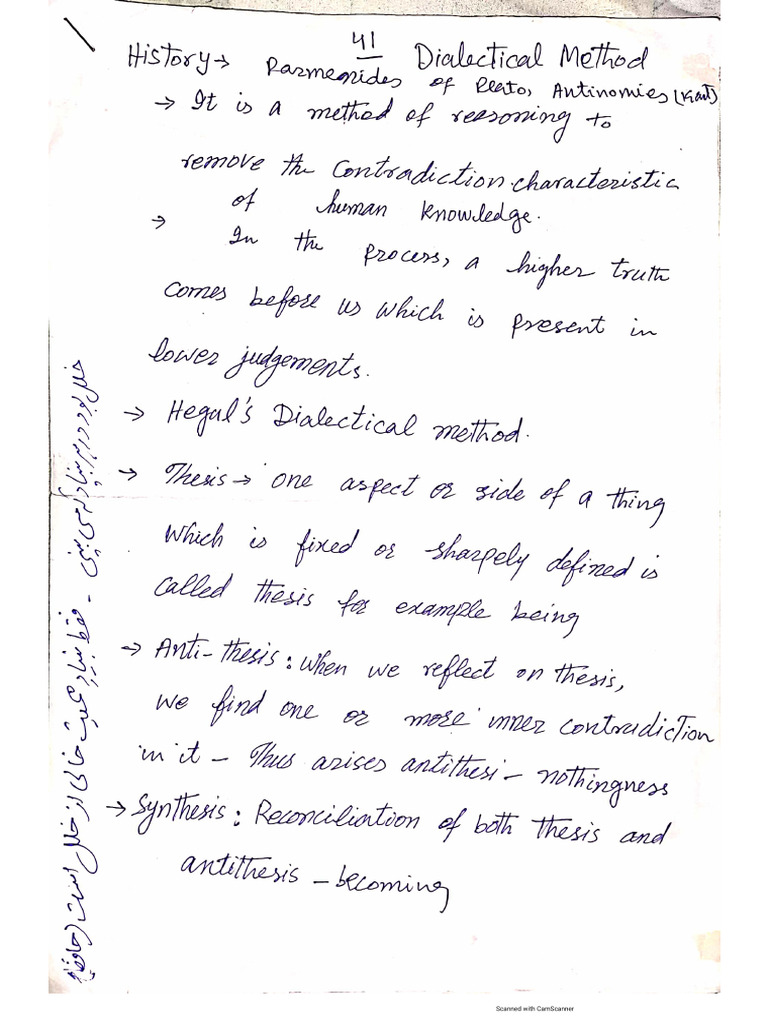 41
History → Dialectical Method
Parmenides of Plato, Antinomies (Kant)
→ It is a method of reasoning to
remove the contradiction characteristic
of human knowledge.
→ In the process, a higher truth
comes before us which is present in
lower judgements.
→ Hegal's Dialectical method.
→ Thesis → one aspect or side of a thing
which is fixed or sharpely defined is
called thesis for example being
→ Anti-thesis: When we reflect on thesis,
we find one or more inner contradiction
in it – Thus arises antithesi – nothingness
→ Synthesis: Reconciliation of both thesis and
antithesis – becoming
خلل پذیر بود هر بنا که می بینی - بنای محبت که خالی از خلل است (حافظ)
Scanned with CamScanner